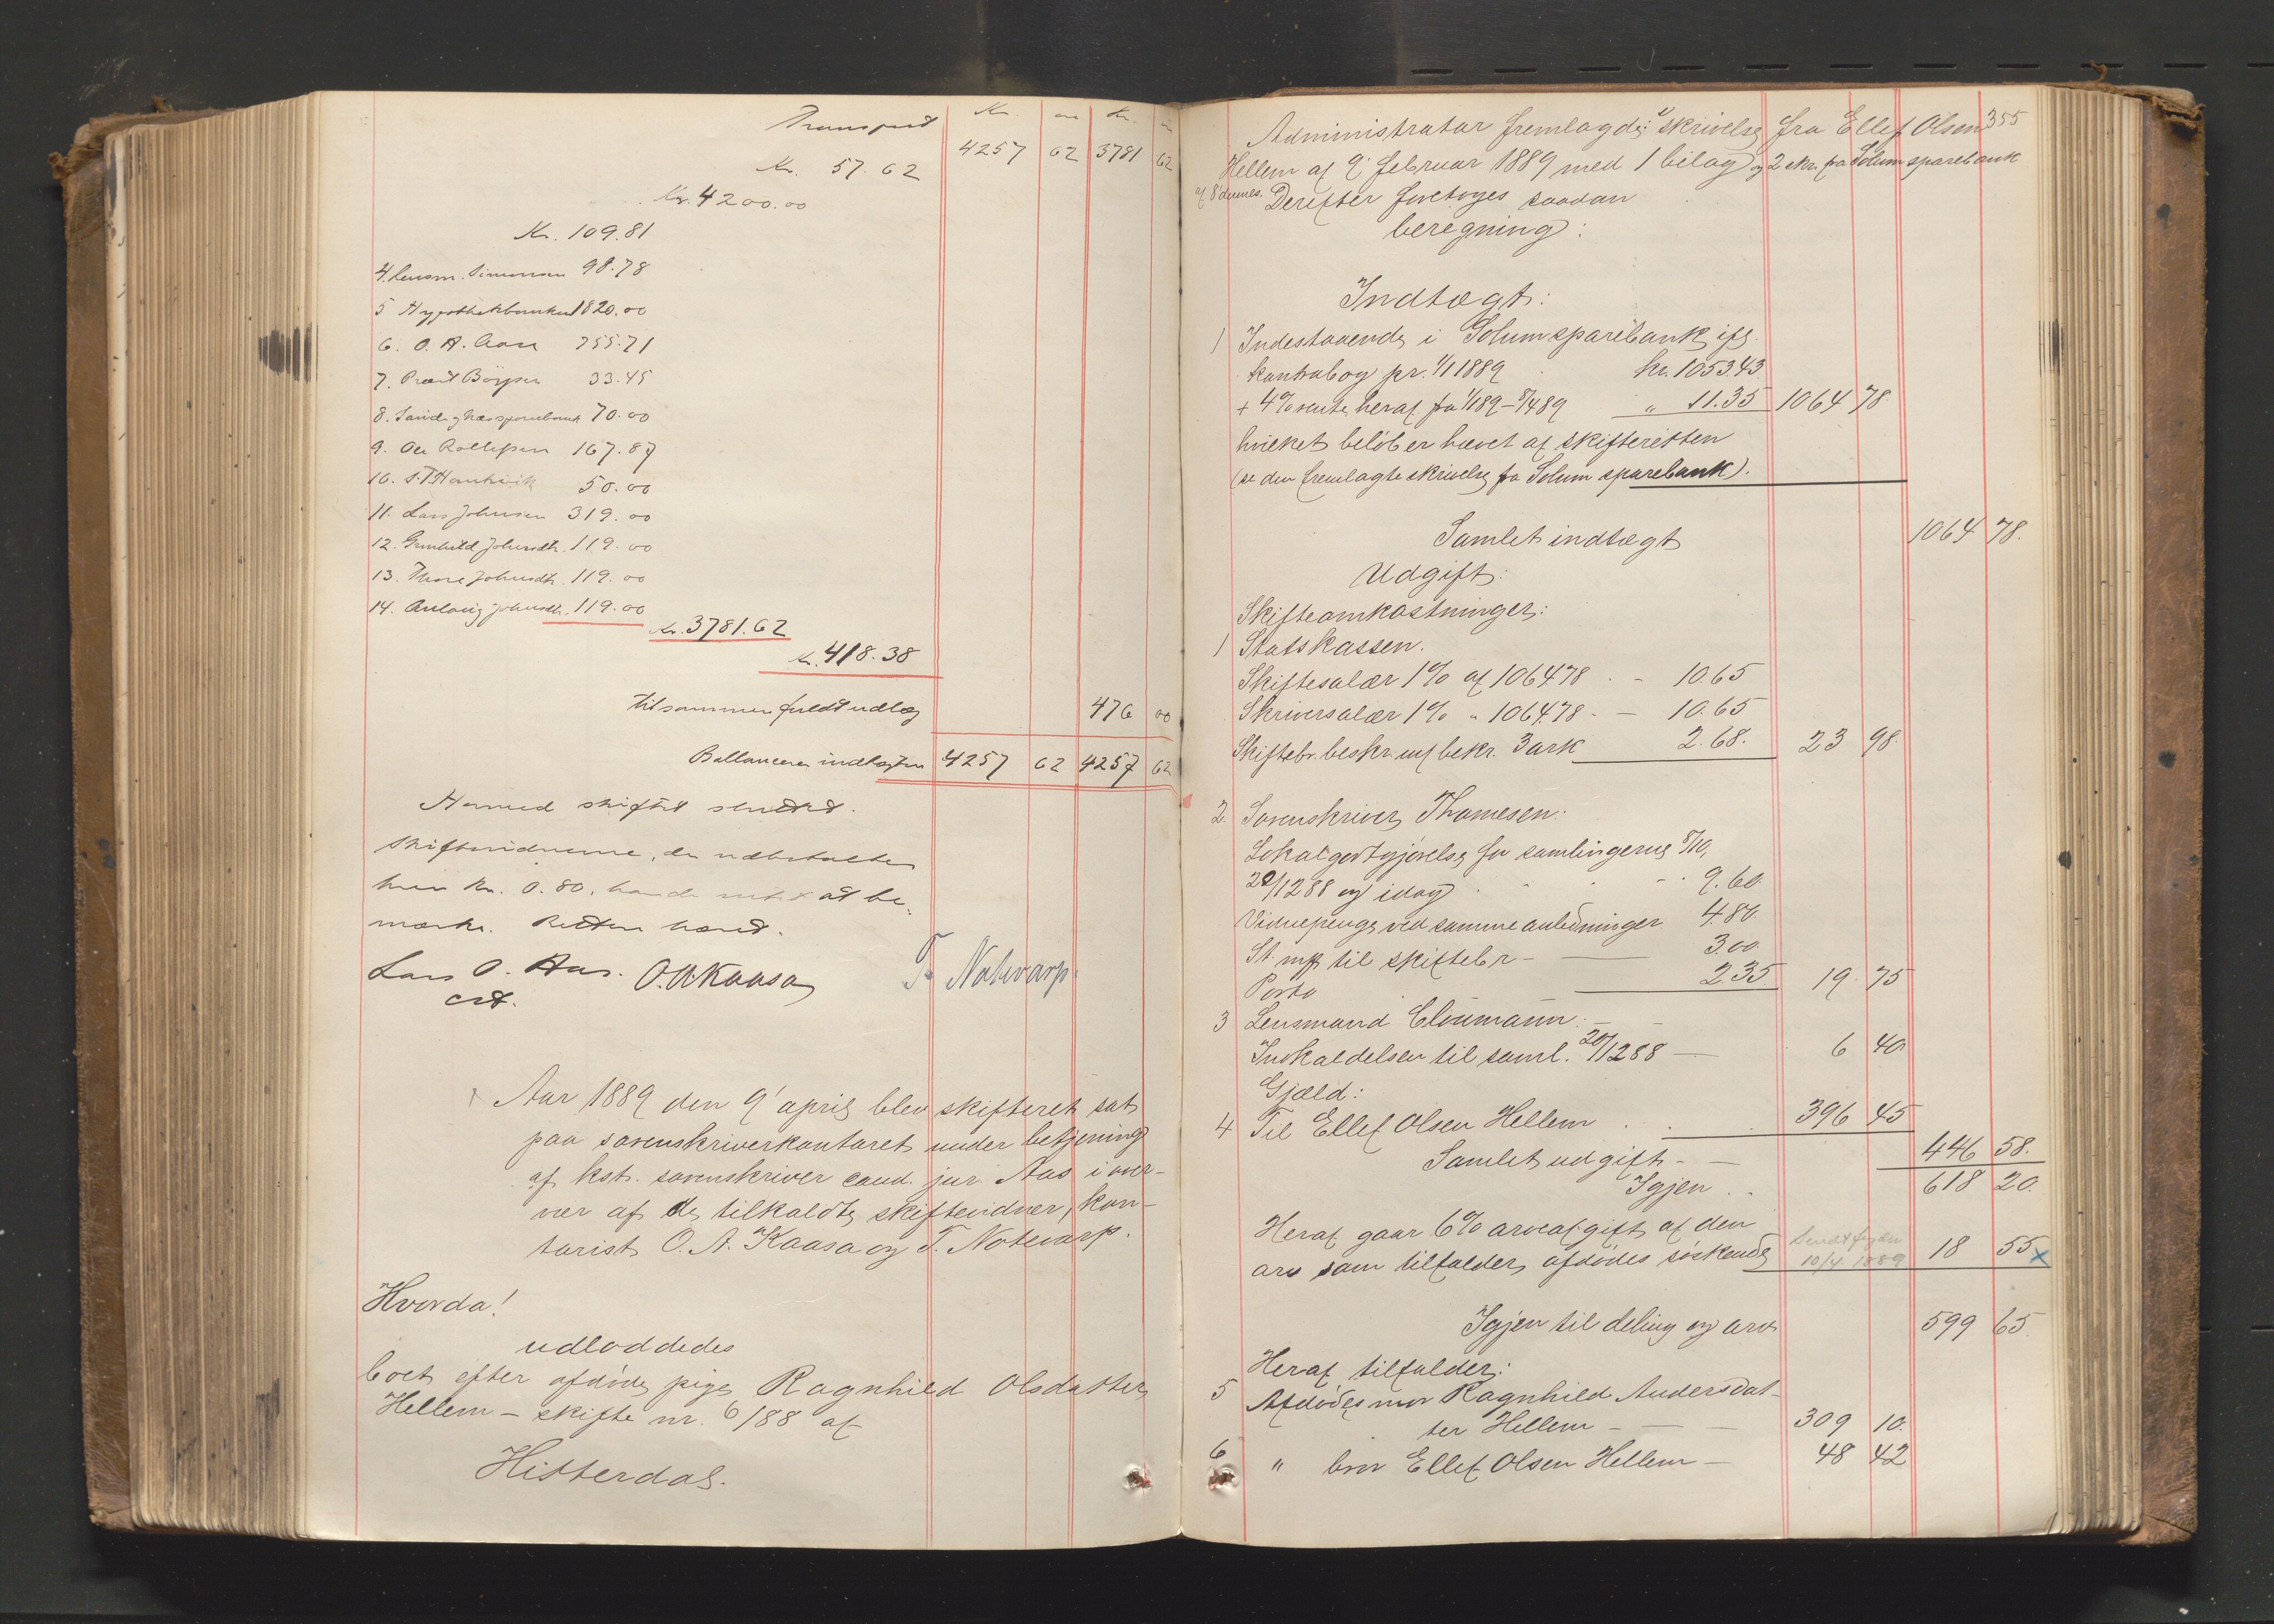 Transport Kr. Kr.
4257 62 3781 62
Kr. 57.62
Kr. 4200.00
Kr. 109.81
4. Lensm. Simonsen 98.78
5 Hypothekbanken 1820.00
6. O. A. Aase 755.71
7. 33.45
8. Sande og sparebank 70.00
9. Ole Rollefsen 167.87
10. 50.00
11. Lars Johnsen 319.00
12. Gunhild Johnsdtr. 119.00
13. Thore Johnsdtr. 119.00
14. Aslaug Johnsdtr. 119.00
Kr. 3781.62
Kr. 418.38
tilsammen fuldt udlæg 476 00
Ballancerer indtægten 4257 62 4257 62
Hermed skiftet sluttet.
Skiftevidnerne, der udbetaltes
hver Kr. 0.80, havde intet at be-
mærke. Retten hævet.
Lars O. Aas. O. A. Kaasa T. Notevarp
cst.
Aar 1889 den 9' april blev skifteret sat
paa sorenskriverkontoret under betjening
af kst. sorenskriver cand. jur. Aas i over-
vær af de tilkaldte skiftevidner, kon-
torist O. A. Kaasa og T. Notevarp.
Hvorda!
udloddedes
boet efter afdøde pige Ragnhild Olsdatter
Hellem – skifte nr. 6/88 af
Hitterdal.
355
Administrator fremlagde: skrivelse fra Ellef Olsen
Hellem af 9' februar 1889 med 1 bilag og 2 skr. fra Solum sparebank
af 8' dennes. Derefter foretoges saadan
beregning:
Indtægt:
1 Indestaaende i Solum sparebank ifg.
kontrabog pr. 1/1 1889 kr. 1053.43
+ 4% rente heraf fra 1/1 89 – 8/4 89 " 11.35 1064 78
hvilket beløb er hævet af skifteretten
(se den fremlagte skrivelse fra Solum sparebank).
Samlet indtægt 1064 78.
Udgift:
Skifteomkostninger:
1 Statskassen.
Skiftesalær 1% af 1064.78 - 10.65
Skriversalær 1% " 1064.78 - 10.65
Skiftebr. beskr. uaf bekr. 3 ark 2.68. 23 98.
2. Sorenskriver Thomesen:
Lokalgodtgjørelse for samlingerne 8/10,
20/12 88 og idag 9.60
Vidnepenge ved samme anledninger 4.80
St. mp til skiftebr - 3.00
Porto 2.35. 19.75
3 Lensmand Cloumann: -
Indkaldelsen til saml. 20/12 88 - 6 40
Gjæld:
4 Til Ellef Olsen Hellem 396 45
Samlet udgift - 446 58.
Igjen 618 20.
Heraf gaar 6% arveafgift af den
arv som tilfalder afdødes søskende 18 55 x
Sendt fogden
10/4 1889
Igjen til deling og arv 599 65
Heraf tilfalder:
5 Afdødes mor Ragnhild Andersdat-
ter Hellem - 309 10.
6 " bror Ellef Olsen Hellem - 48 42